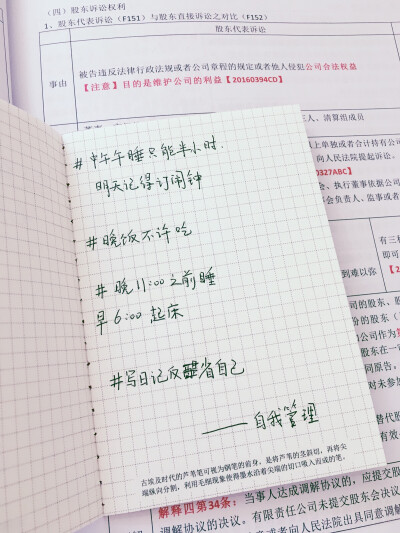 （四）股东诉讼权利
1、股东代表诉讼（F151）与股东直接诉讼之对比（F152）
股东代表诉讼
事由
被告违反法律行政法规或者公司章程的规定或者他人侵犯公司合法权益
【注意】目的是维护公司的利益【20160394CD】
三人、清算组成员
上单独或者合计持有公司
向人民法院提起诉讼。
0327ABC】
会、执行董事依据公司
事会负责人、监事或者
有三种
即可
到难以弥
【2
#中午午睡只能半小时.
明天记得订闹钟
#晚饭不许吃
#晚11:00之前睡
早6:00起床
#写日记反省自己
——自我管理
古埃及时代的芦苇笔可视为钢笔的前身，是将芦苇的茎斜切，再将尖
端纵向分割，利用毛细现象使得墨水沿着尖端的切口吸入而成的笔。
的股东、股
份的股东（
公司作为第
股东在一审
同原告。
对未参加
解释四第34条：当事人达成调解协议的，应提交股
调解协议的决议。有限责任公司未提交股东会决议
或者向人民法院出具同意调解